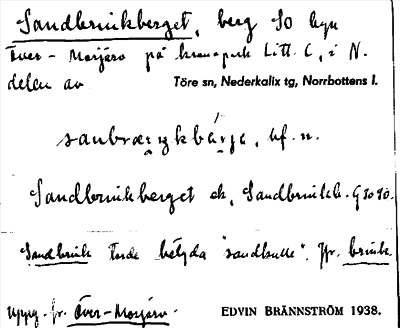 Sandbrinkberget, berg SO byn
Över-Morjärv på kronopark Litt. C, i N.
delen av Töre sn, Nederkalix tg, Norrbottens l.
Sandbrinkberget ek. Sandbrinkb. G 50 90.
Sandbrink torde betyda "sandkulle". Jfr. brink.
Uppg. fr. Över-Morjärv. EDVIN BRÄNNSTRÖM 1938.